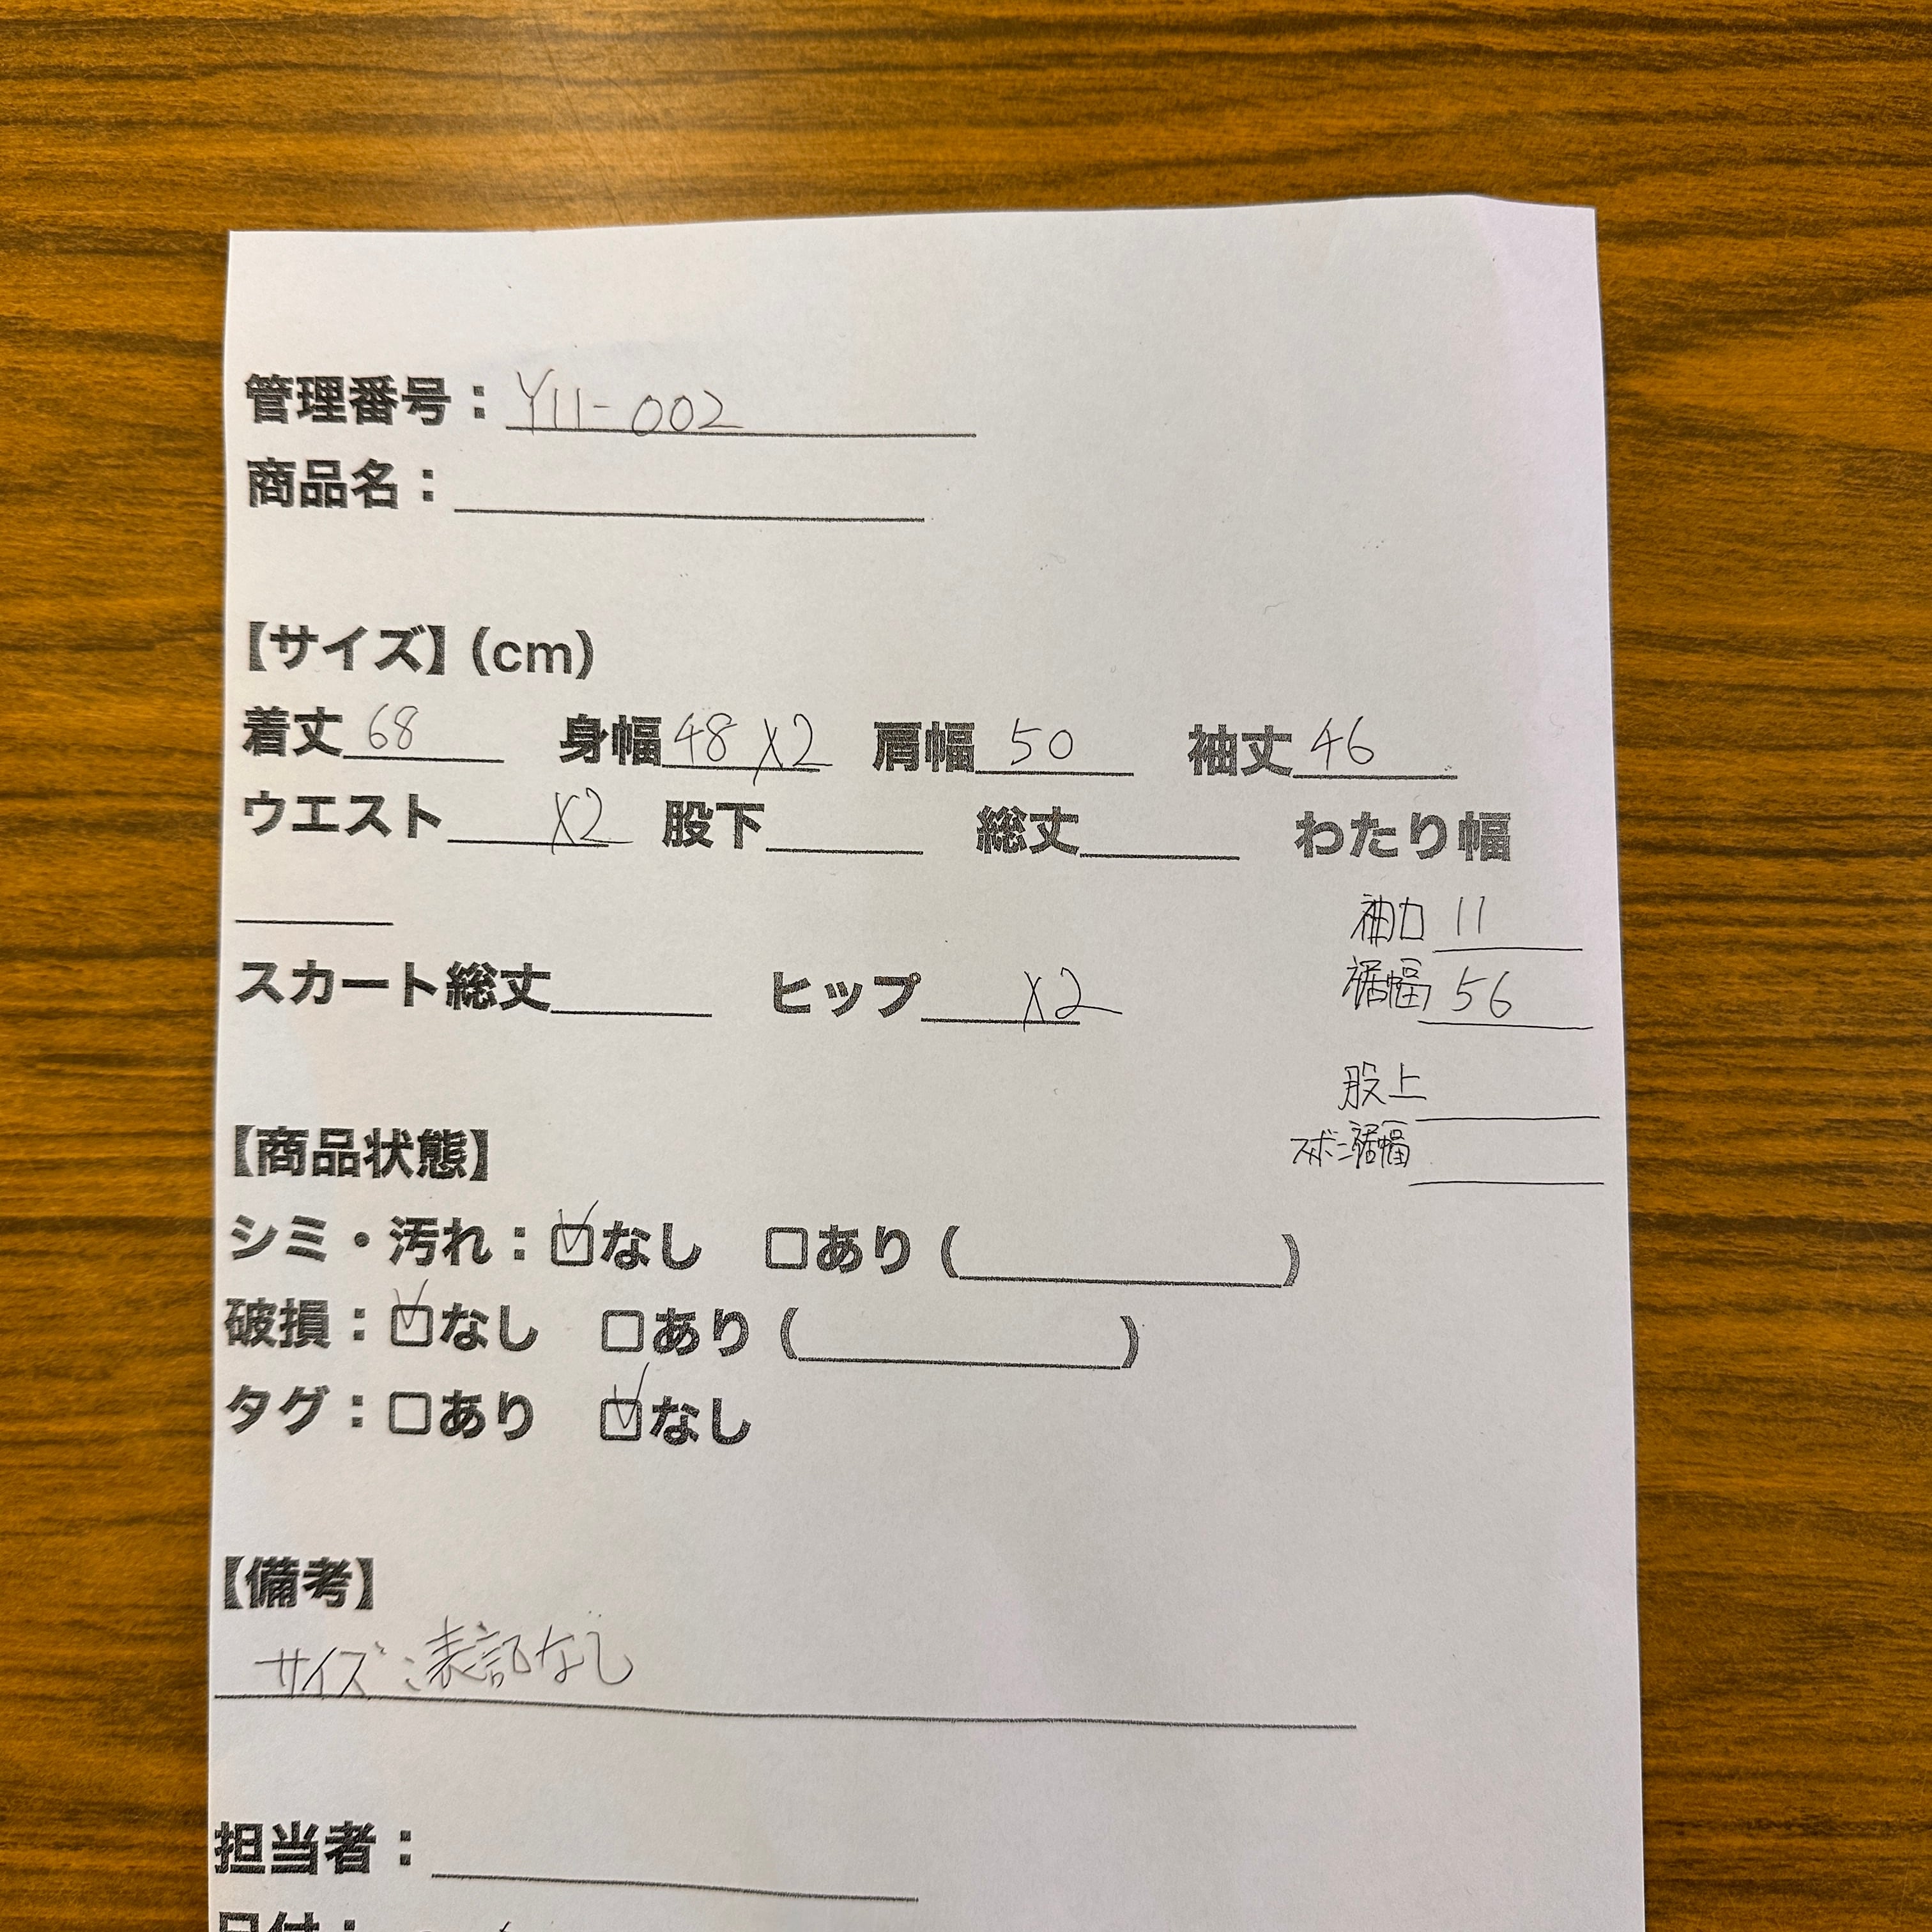 管理番号：Y11-002
商品名：
【サイズ】（cm）
着丈 68 身幅 48 X2 肩幅 50 袖丈 46
ウエスト X2 股下 総丈 わたり幅
袖口 11
裾幅 56
スカート総丈 ヒップ X2
股上
ズボン裾幅
【商品状態】
シミ・汚れ：☑なし □あり（ ）
破損：☑なし □あり（ ）
タグ：□あり ☑なし
【備考】
サイズ：表記なし
担当者：
日付：